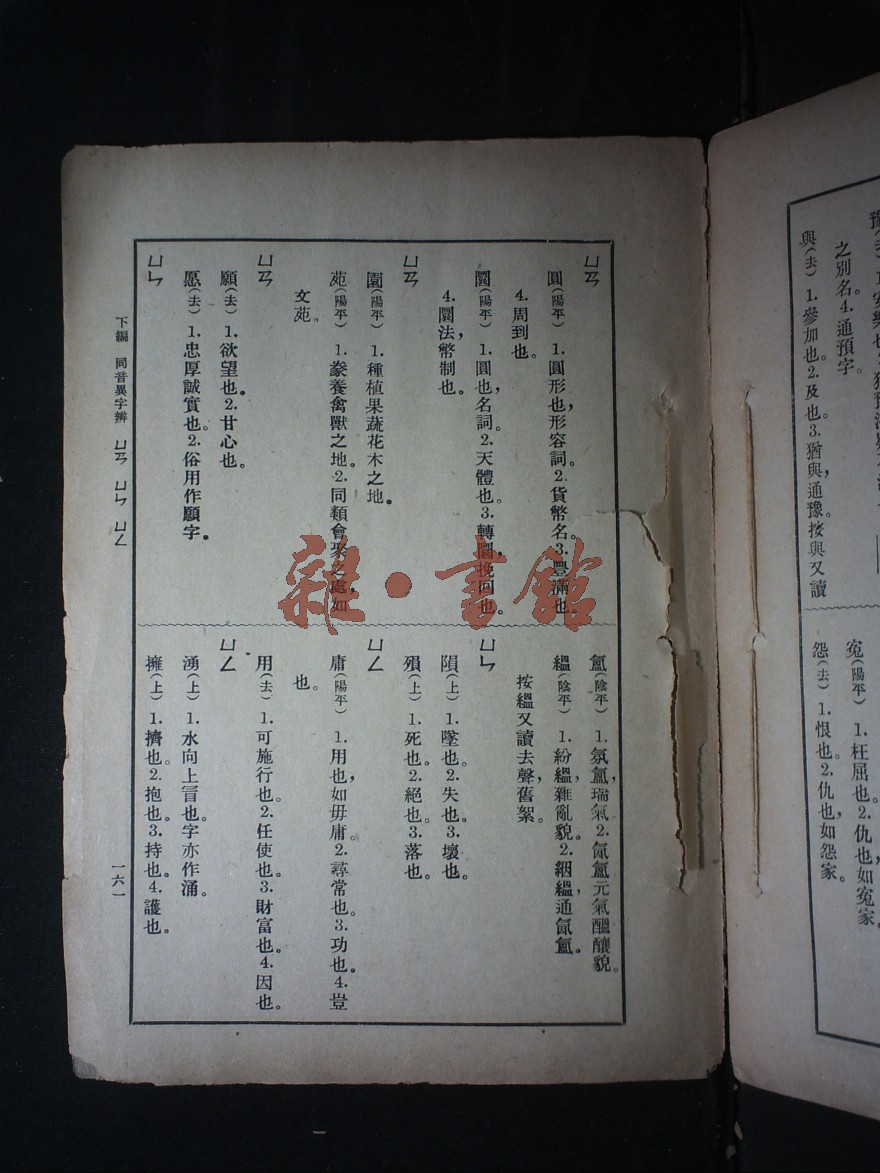 豫(去)
之別名。4.通預字
與(去) 1.參加也。2.及也。3.猶與,通豫。按與又讀
冤(陽平) 1.枉屈也。2.仇也,如冤家。
怨(去) 1.恨也。2.仇也,如怨家。
ㄩㄢ
圓(陽平) 1.圓形也,形容詞。2.貨幣名。3.豐滿也。
4.周到也。
圜(陽平) 1.圓也,名詞。2.天體也。3.轉圜,挽回也。
4.圜法,幣制也。
ㄩㄢ
園(陽平) 1.種植果蔬花木之地。
苑(陽平) 1.豢養禽獸之地。2.同類會聚之處,如
文苑。
ㄩㄢ
願(去) 1.欲望也。2.甘心也。
愿(去) 1.忠厚誠實也。2.俗用作願字。
ㄩㄣ
氳(陰平) 1.氛氳,瑞氣。2.氤氳元氣醞釀貌。
縕(陰平) 1.紛縕,雜亂貌。2.絪縕,通氤氳。
按縕又讀去聲,舊絮。
ㄩㄣ
隕(上) 1.墜也。2.失也。3.壞也。
殞(上) 1.死也。2.絕也。3.落也。
ㄩㄥ
庸(陽平) 1.用也,如毋庸。2.尋常也。3.功也。4.豈
也。
用(去) 1.可施行也。2.任使也。3.財富也。4.因也。
ㄩㄥ
湧(上) 1.水向上冒也。字亦作涌。
擁(上) 1.擠也。2.抱也。3.持也。4.護也。
下編 同音異字辨 ㄩㄢ ㄩㄣ ㄩㄥ
一六一
雜·書館